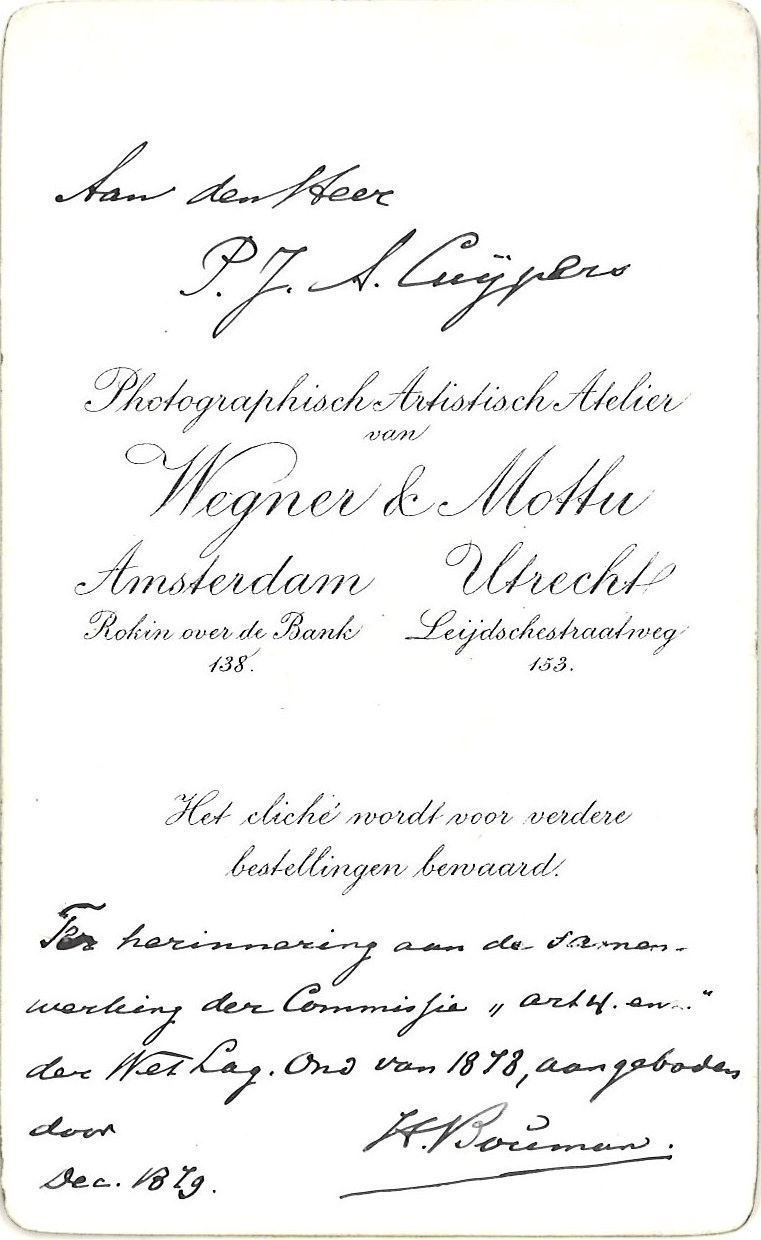 Aan den Heer
P. J. A. Cuÿpers
Photographisch Artistisch Atelier
van
Wegner & Mottu
Amsterdam Utrecht
Rokin over de Bank Leijdschestraatweg
138. 153.
Het cliché wordt voor verdere
bestellingen bewaard.
Ter herinnering aan de samen-
werking der Commissie „ art 4. en..“
der Wet Lag. Ond van 1878, aangeboden
door H. Bouman.
Dec. 1879.